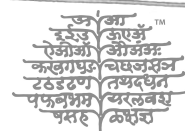 अ आ ™
इ ई उ ऊ ए ऍ
ऐ ओ औ
क ख ग घ ङ च छ ज झ ञ
ट ठ ड ढ ण त थ द ध न
प फ ब भ म य र ल व श
ष स ह ळ क्ष ज्ञ